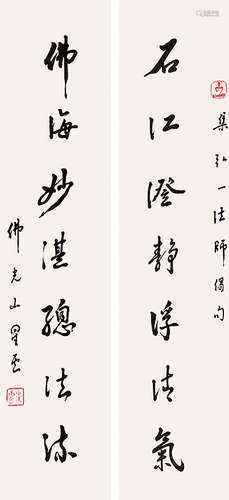 集弘一法師偈句
石江澄靜浮清氣
佛海妙湛總法流
佛光山星雲